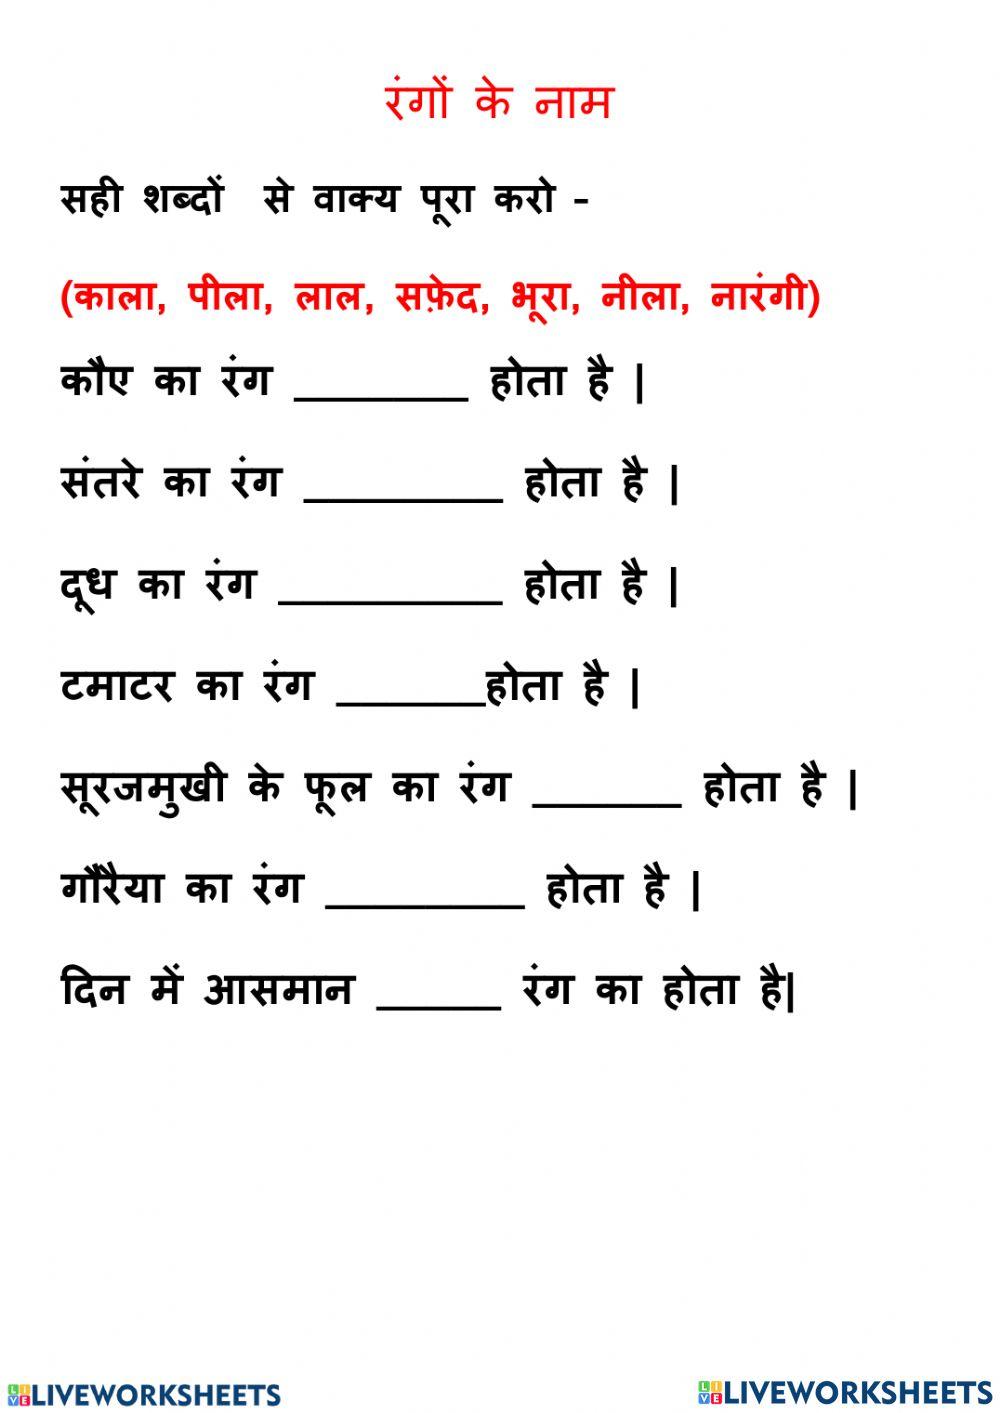 रंगों के नाम
सही शब्दों से वाक्य पूरा करो –
(काला, पीला, लाल, सफ़ेद, भूरा, नीला, नारंगी)
कौए का रंग _______ होता है |
संतरे का रंग ________ होता है |
दूध का रंग _________ होता है |
टमाटर का रंग ______होता है |
सूरजमुखी के फूल का रंग ______ होता है |
गौरैया का रंग ________ होता है |
दिन में आसमान _____ रंग का होता है|
LIVEWORKSHEETS
LIVEWORKSHEETS